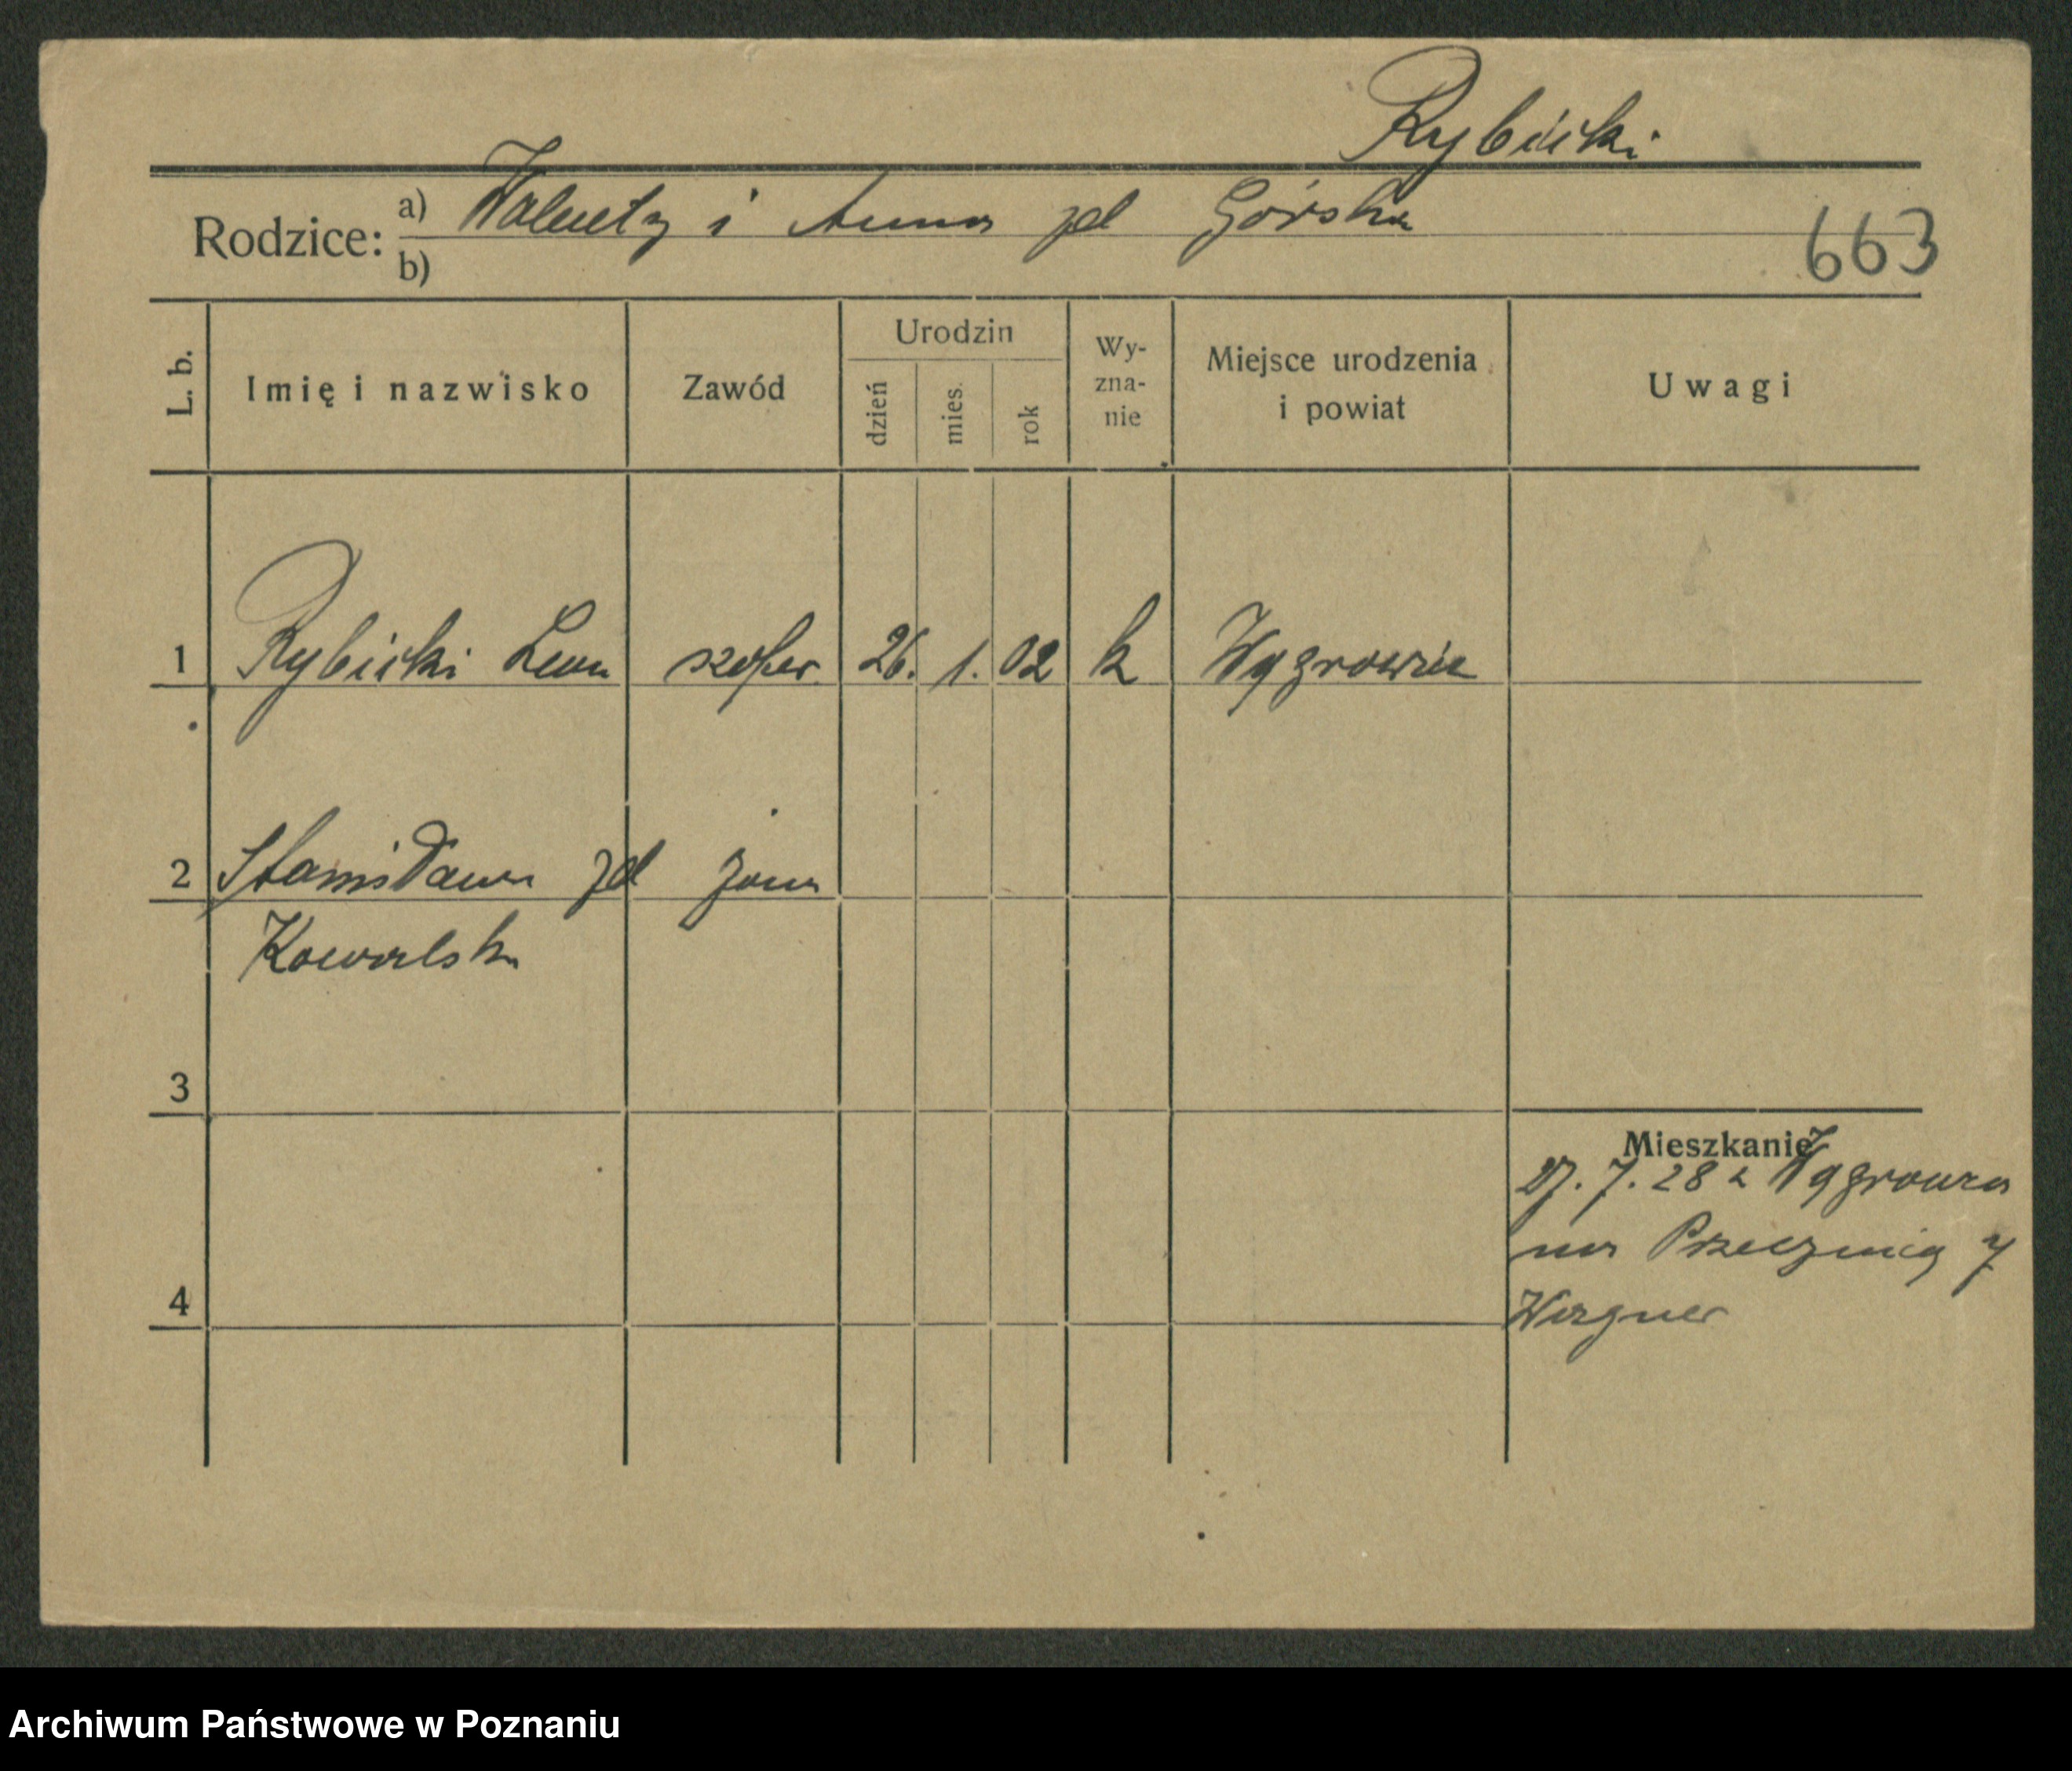 Rybicki
Rodzice: a) Walenty i Anna zd Górska
b)
663
L. b.
Imię i nazwisko
Zawód
Urodzin
dzień
mies.
rok
Wy-
zna-
nie
Miejsce urodzenia
i powiat
Uwagi
1 Rybicki Leon szofer 26. 1. 02 k Wągrowiec
2 Stanisława zd żona
Kowalska
3
Mieszkanie
27. 7. 28 z Wągrowca
na Przecznicę 7
Wagner
4
Archiwum Państwowe w Poznaniu